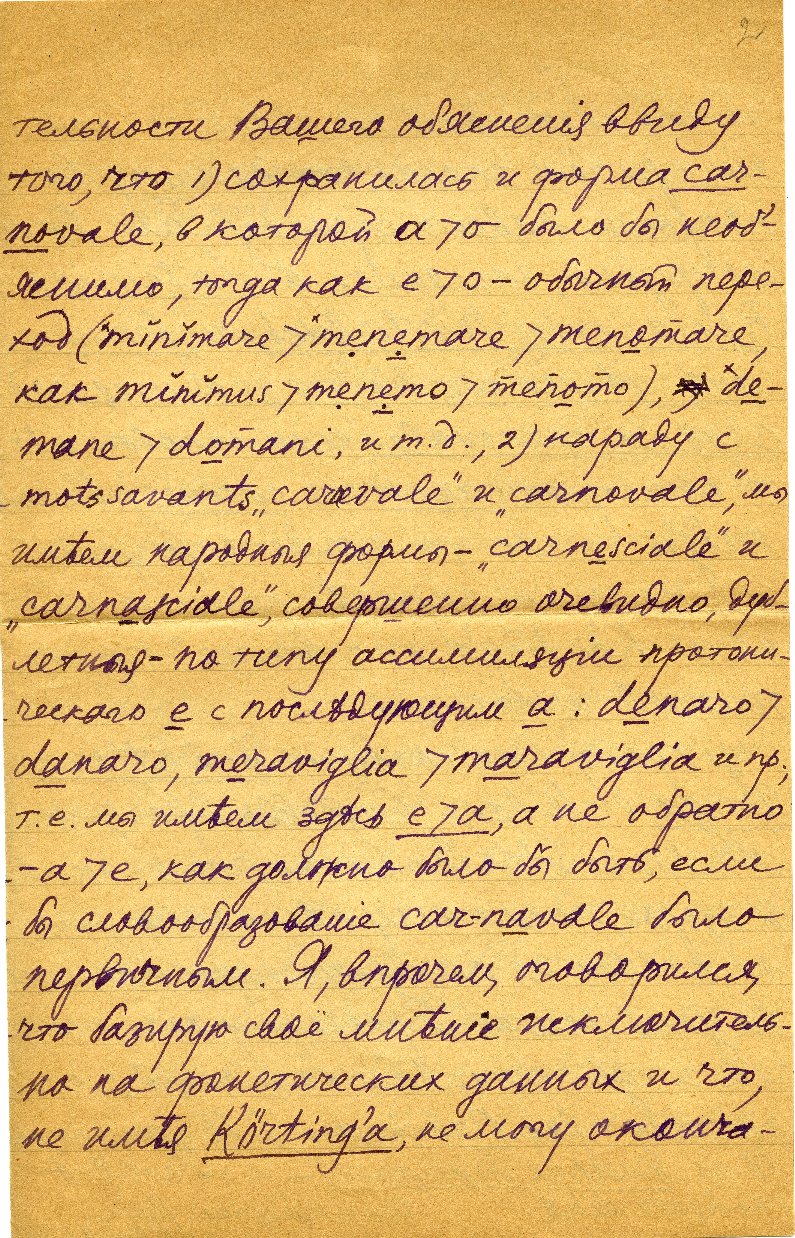 2
тельности Вашего объясненія ввиду
того, что 1) сохранилась и форма car-
novale, в которой a > o было бы необ-
яснимо, тогда как e > o – обычный пере-
ход (*mĭnĭmare > *menemare > menomare,
как mĭnĭmus > menemo > menomo), *de-
mane > domani, и т.д., 2) наряду с
mots savants „carnevale“ и „carnovale“, мы
имѣем народныя формы – „carnesciale“ и
„carnasciale“, совершенно очевидно, дуб-
летныя – по типу ассимиляціи протони-
ческаго e с послѣдующим a: denaro >
danaro, meraviglia > maraviglia и пр.,
т.е. мы имѣем здѣсь e > a, а не обратно
– a > e, как должно было бы быть, если
бы словообразованіе car-navale было
первичным. Я, впрочем, оговорился,
что базирую своё мнѣніе исключитель-
но на фонетических данных и что,
не имѣя Körting'а, не могу оконча-